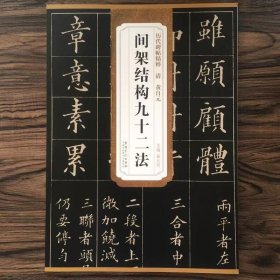 历代碑帖精粹 清 黄自元
间架结构九十二法
雖願顧體
章意素累
雨平者左
三合者中
二段者上
微加饒減
三聯者頭
仍要停与